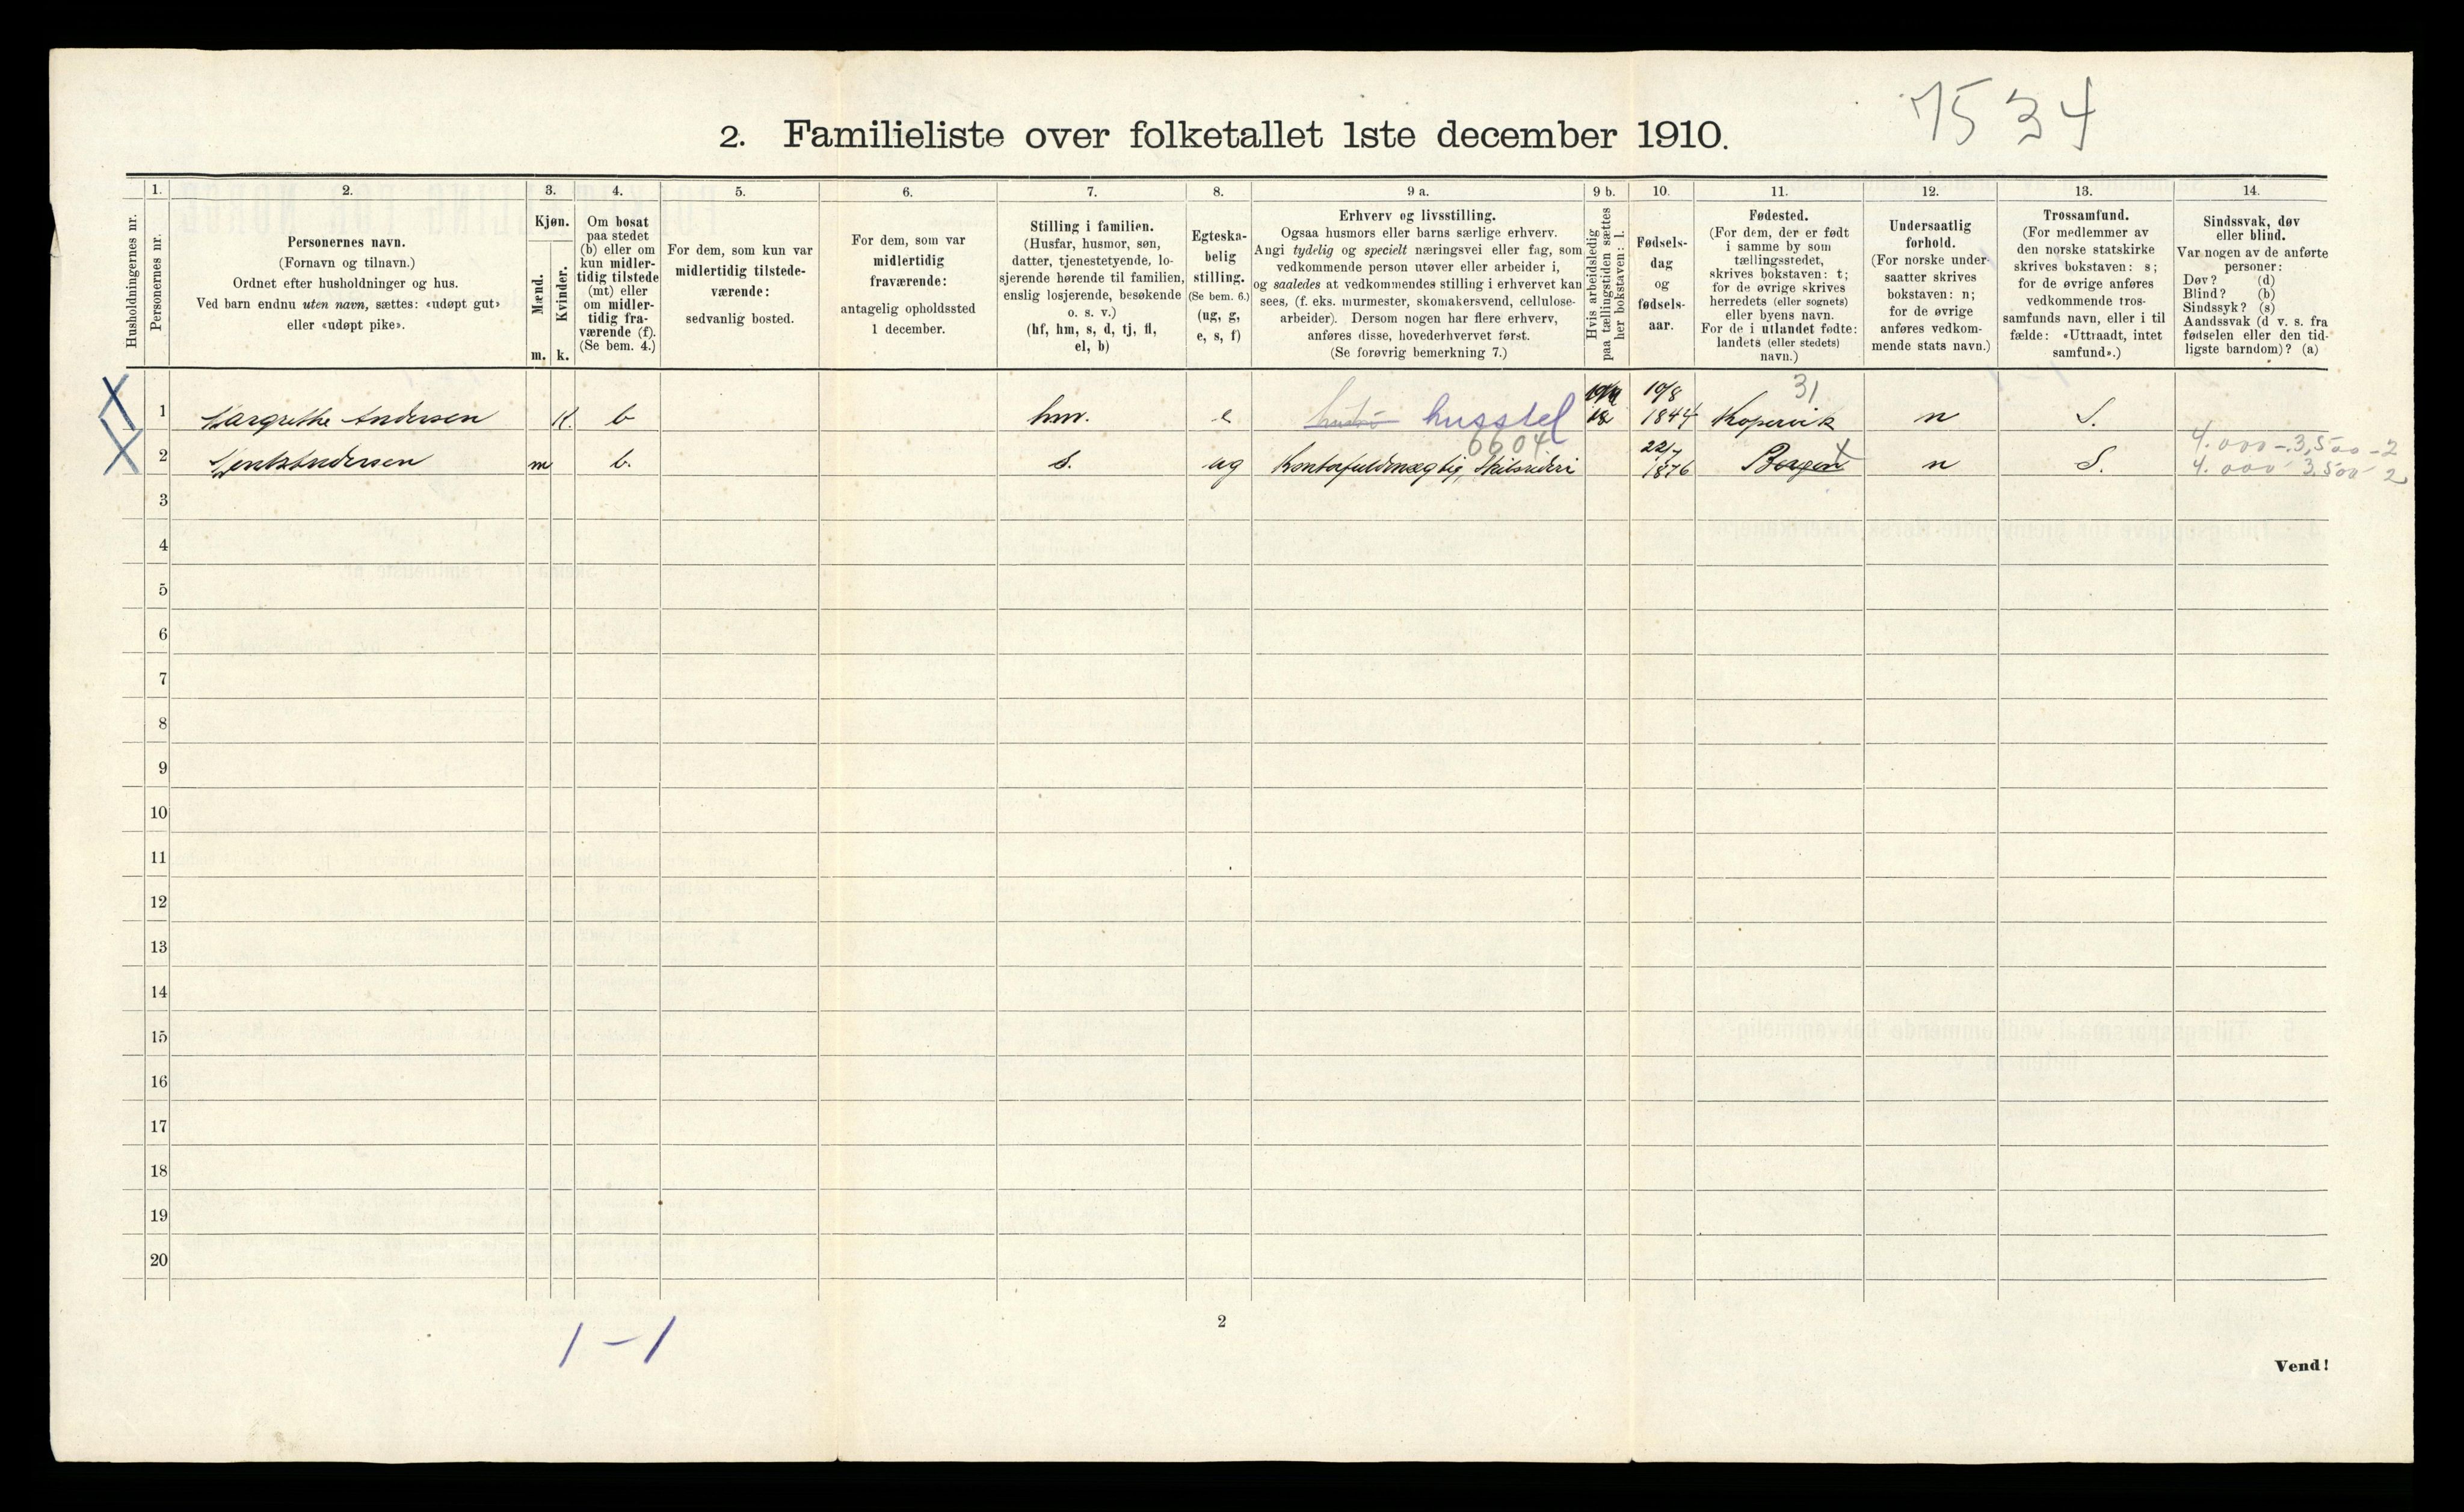 7534
2. Familieliste over folketallet 1ste december 1910.
1. 2. 3. 4. 5. 6. 7. 8. 9 a. 9 b. 10. 11. 12. 13. 14.
Husholdningernes nr.
Personernes nr.
Personernes navn.
(Fornavn og tilnavn.)
Ordnet efter husholdninger og hus.
Ved barn endnu uten navn, sættes: «udøpt gut»
eller «udøpt pike».
Kjøn.
Mænd.
Kvinder.
m. k.
Om bosat
paa stedet
(b) eller om
kun midler-
tidig tilstede
(mt) eller
om midler-
tidig fra-
værende (f).
(Se bem. 4.)
For dem, som kun var
midlertidig tilstede-
værende:
sedvanlig bosted.
For dem, som var
midlertidig
fraværende:
antagelig opholdssted
1 december.
Stilling i familien.
(Husfar, husmor, søn,
datter, tjenestetyende, lo-
sjerende hørende til familien,
enslig losjerende, besøkende
o. s. v.)
(hf, hm, s, d, tj, fl,
el, b)
Egteska-
belig
stilling.
(Se bem. 6.)
(ug, g,
e, s, f)
Erhverv og livsstilling.
Ogsaa husmors eller barns særlige erhverv.
Angi tydelig og specielt næringsvei eller fag, som
vedkommende person utøver eller arbeider i,
og saaledes at vedkommendes stilling i erhvervet kan
sees, (f. eks. murmester, skomakersvend, cellulose-
arbeider). Dersom nogen har flere erhverv,
anføres disse, hovederhvervet først.
(Se forøvrig bemerkning 7.)
Hvis arbeidsledig
paa tællingstiden sættes
her bokstaven: l.
Fødsels-
dag
og
fødsels-
aar.
Fødested.
(For dem, der er født
i samme by som
tællingsstedet,
skrives bokstaven: t;
for de øvrige skrives
herredets (eller sognets)
eller byens navn.
For de i utlandet fødte:
landets (eller stedets)
navn.)
Undersaatlig
forhold.
(For norske under-
saatter skrives
bokstaven: n;
for de øvrige
anføres vedkom-
mende stats navn.)
Trossamfund.
(For medlemmer av
den norske statskirke
skrives bokstaven: s;
for de øvrige anføres
vedkommende tros-
samfunds navn, eller i til-
fælde: «Uttraadt, intet
samfund».)
Sindssvak, døv
eller blind.
Var nogen av de anførte
personer:
Døv? (d)
Blind? (b)
Sindssyk? (s)
Aandssvak (d v. s. fra
fødselen eller den tid-
ligste barndom)? (a)
1 Margrethe Andersen K. b hm. e husstel 10/8 1844 31 Kopervik n S.
2 Andersen m b. s. ug Kontorfuldmægtig, Skibsrederi 6604 22/7 1876 Bergen t n S.
4.000-3,500-2
4.000 3.500 2
3
4
5
6
7
8
9
10
11
12
13
14
15
16
17
18
19
20
1-1
2
Vend!